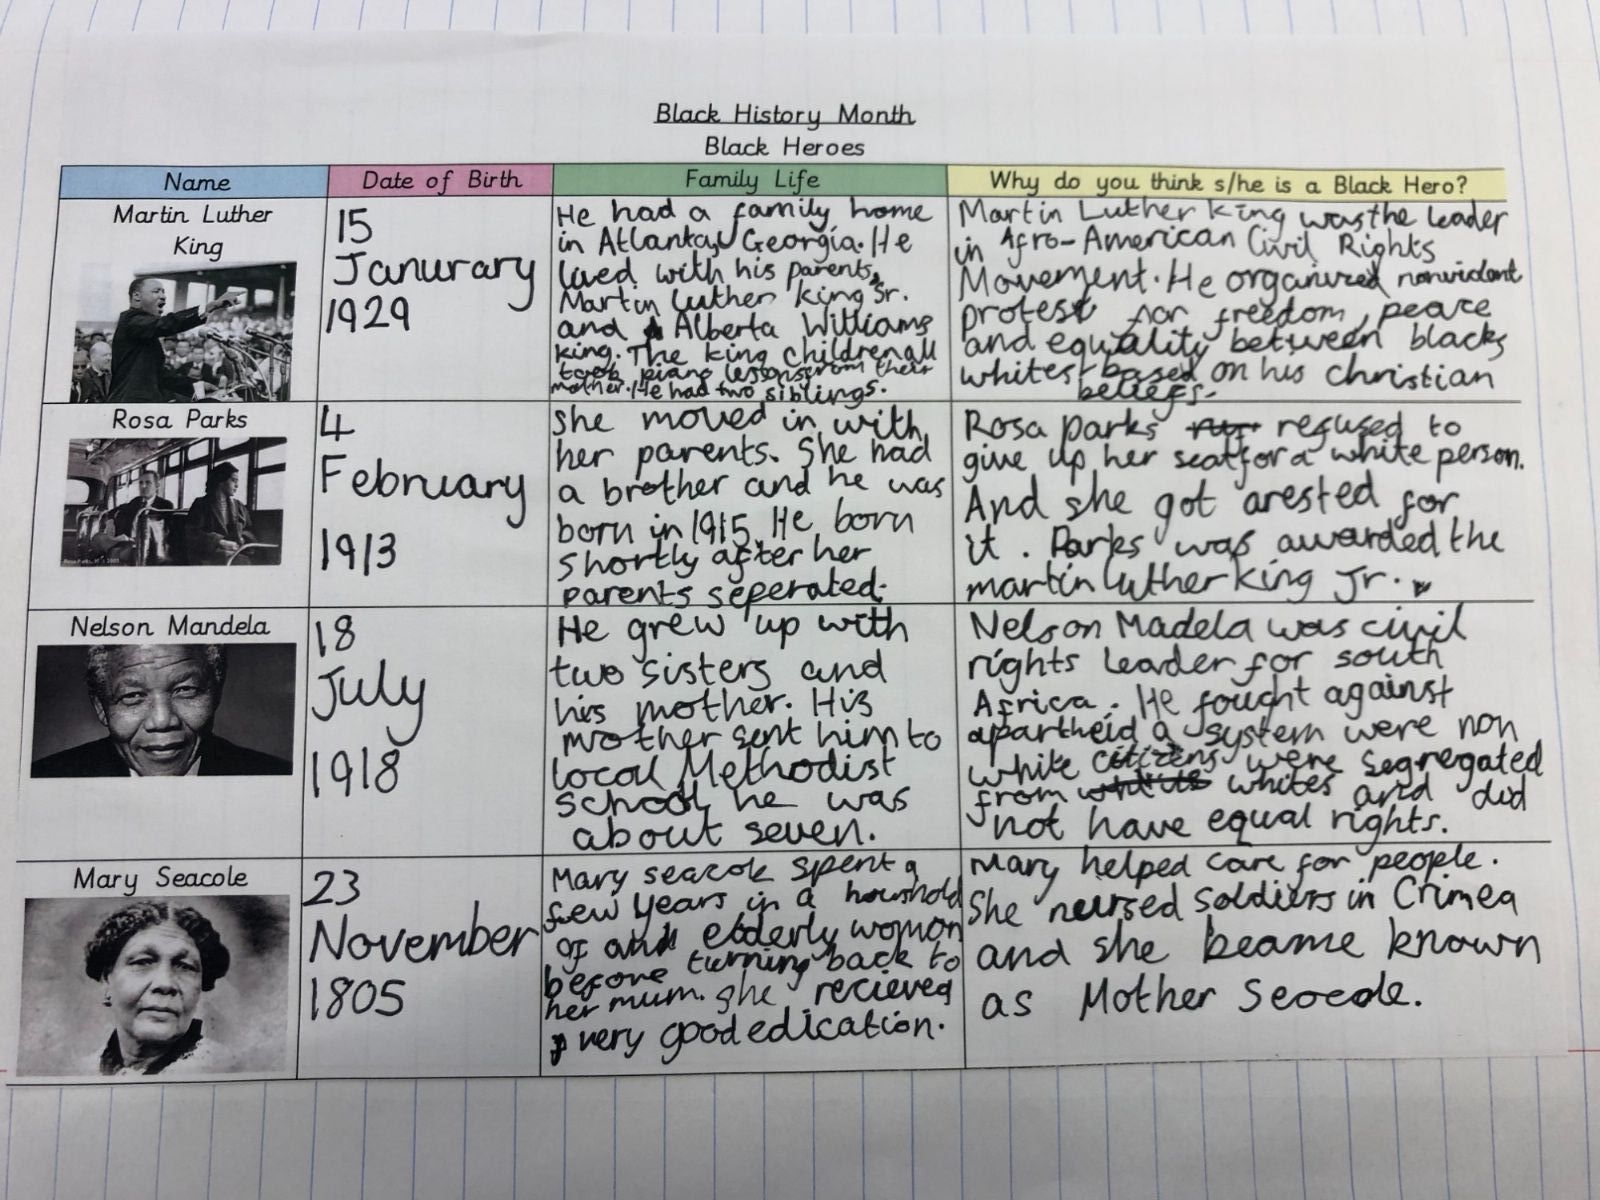 Black History Month
Black Heroes
Name
Date of Birth
Family Life
Why do you think s/he is a Black Hero?
Martin Luther
King
15
Janurary
1929
He had a family home
in Atlanta, Georgia. He
lived with his parents,
Martin Luther King Sr.
and Alberta Williams
King. The King children all
took piano lessons from their
mother. He had two siblings.
Martin Luther King was the leader
in Afro-American Civil Rights
Movement. He organized nonviolent
protest for freedom, peace
and equality between blacks
whites based on his christian
beliefs.
Rosa Parks
4
February
1913
She moved in with
her parents. She had
a brother and he was
born in 1915. He born
shortly after her
parents seperated.
Rosa parks refused to
give up her seat for a white person.
And she got arested for
it. Parks was awarded the
martin luther King Jr.
Nelson Mandela
18
July
1918
He grew up with
two sisters and
his mother. His
mother sent him to
local Methodist
school he was
about seven.
Nelson Madela was civil
rights leader for south
Africa. He fought against
apartheid a system were non
white citizens were segregated
from whites and did
not have equal rights.
Mary Seacole
23
November
1805
Mary seacole spent a
few years in a houshold
of elderly woman
before turning back to
her mum. she recieved
very good edication.
Mary helped care for people.
She nursed soldiers in Crimea
and she beame known
as Mother Seocole.